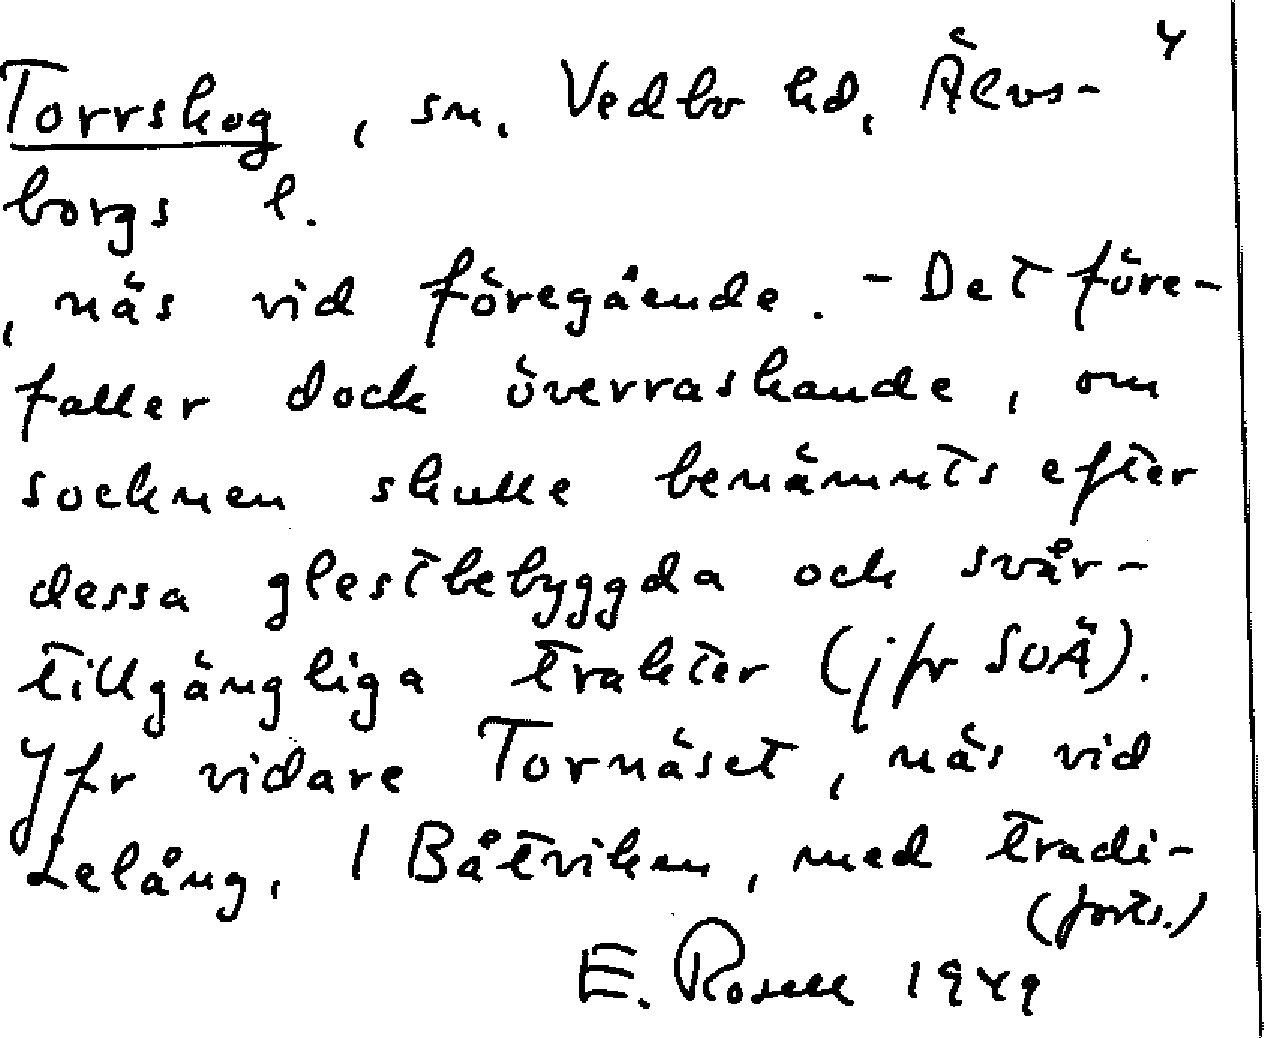 4
Torrskog, sn. Vedbo hd, Älvs-
borgs l.
, näs vid föregående. - Det före-
faller dock överraskande, om
socknen skulle benämnts efter
dessa glestbebyggda och svår-
tillgängliga trakter (jfr SOÄ).
Jfr vidare Tornäset, näs vid
Lelång, i Båtviken, med tradi-
(forts.)
E. Rosell 1949